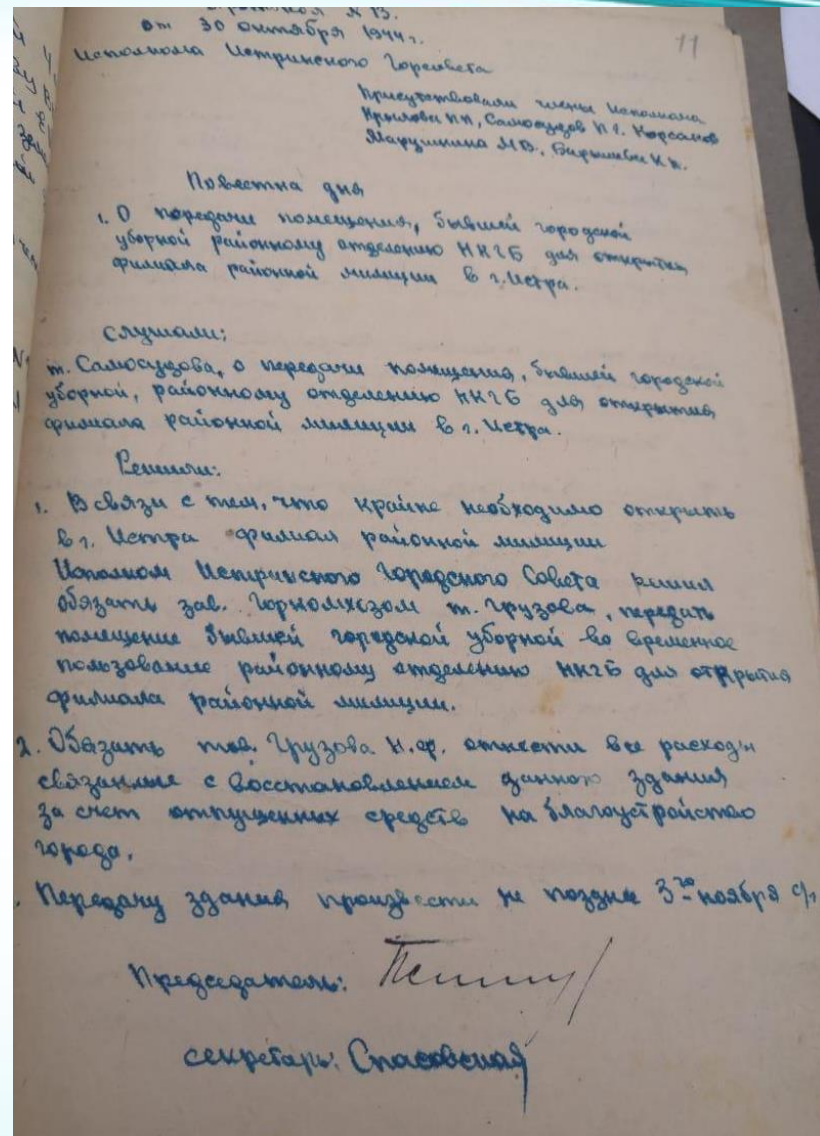 Протокол № 13.
от 30 октября 1944 г.
Исполкома Истринского Горсовета
11
Присутствовали члены Исполкома
Крылова Самосудов П.С. Корсаков
Марушкина М.В.,
Повестка дня
1. О передачи помещения, бывшей городской
уборной районному отделению НКГБ для открытия
филиала районной милиции в г. Истра.
Слушали:
т. Самосудова, о передачи помещения, бывшей городской
уборной, районному отделению НКГБ для открытия
филиала районной милиции в г. Истра.
Решили:
1. В связи с тем, что крайне необходимо открыть
в г. Истра филиал районной милиции
Исполком Истринского Городского Совета решил
обязать зав. Горкомхозом т. Грузова, передать
помещение бывшей городской уборной во временное
пользование районному отделению НКГБ для открытия
филиала районной милиции.
2. Обязать тов. Грузова Н.Ф. отнести все расходы
связанные с восстановлением данного здания
за счет отпущенных средств на благоустройство
города.
. Передачу здания произвести не поздне 3го ноября с/г
Председатель:
секретарь: Спасовская